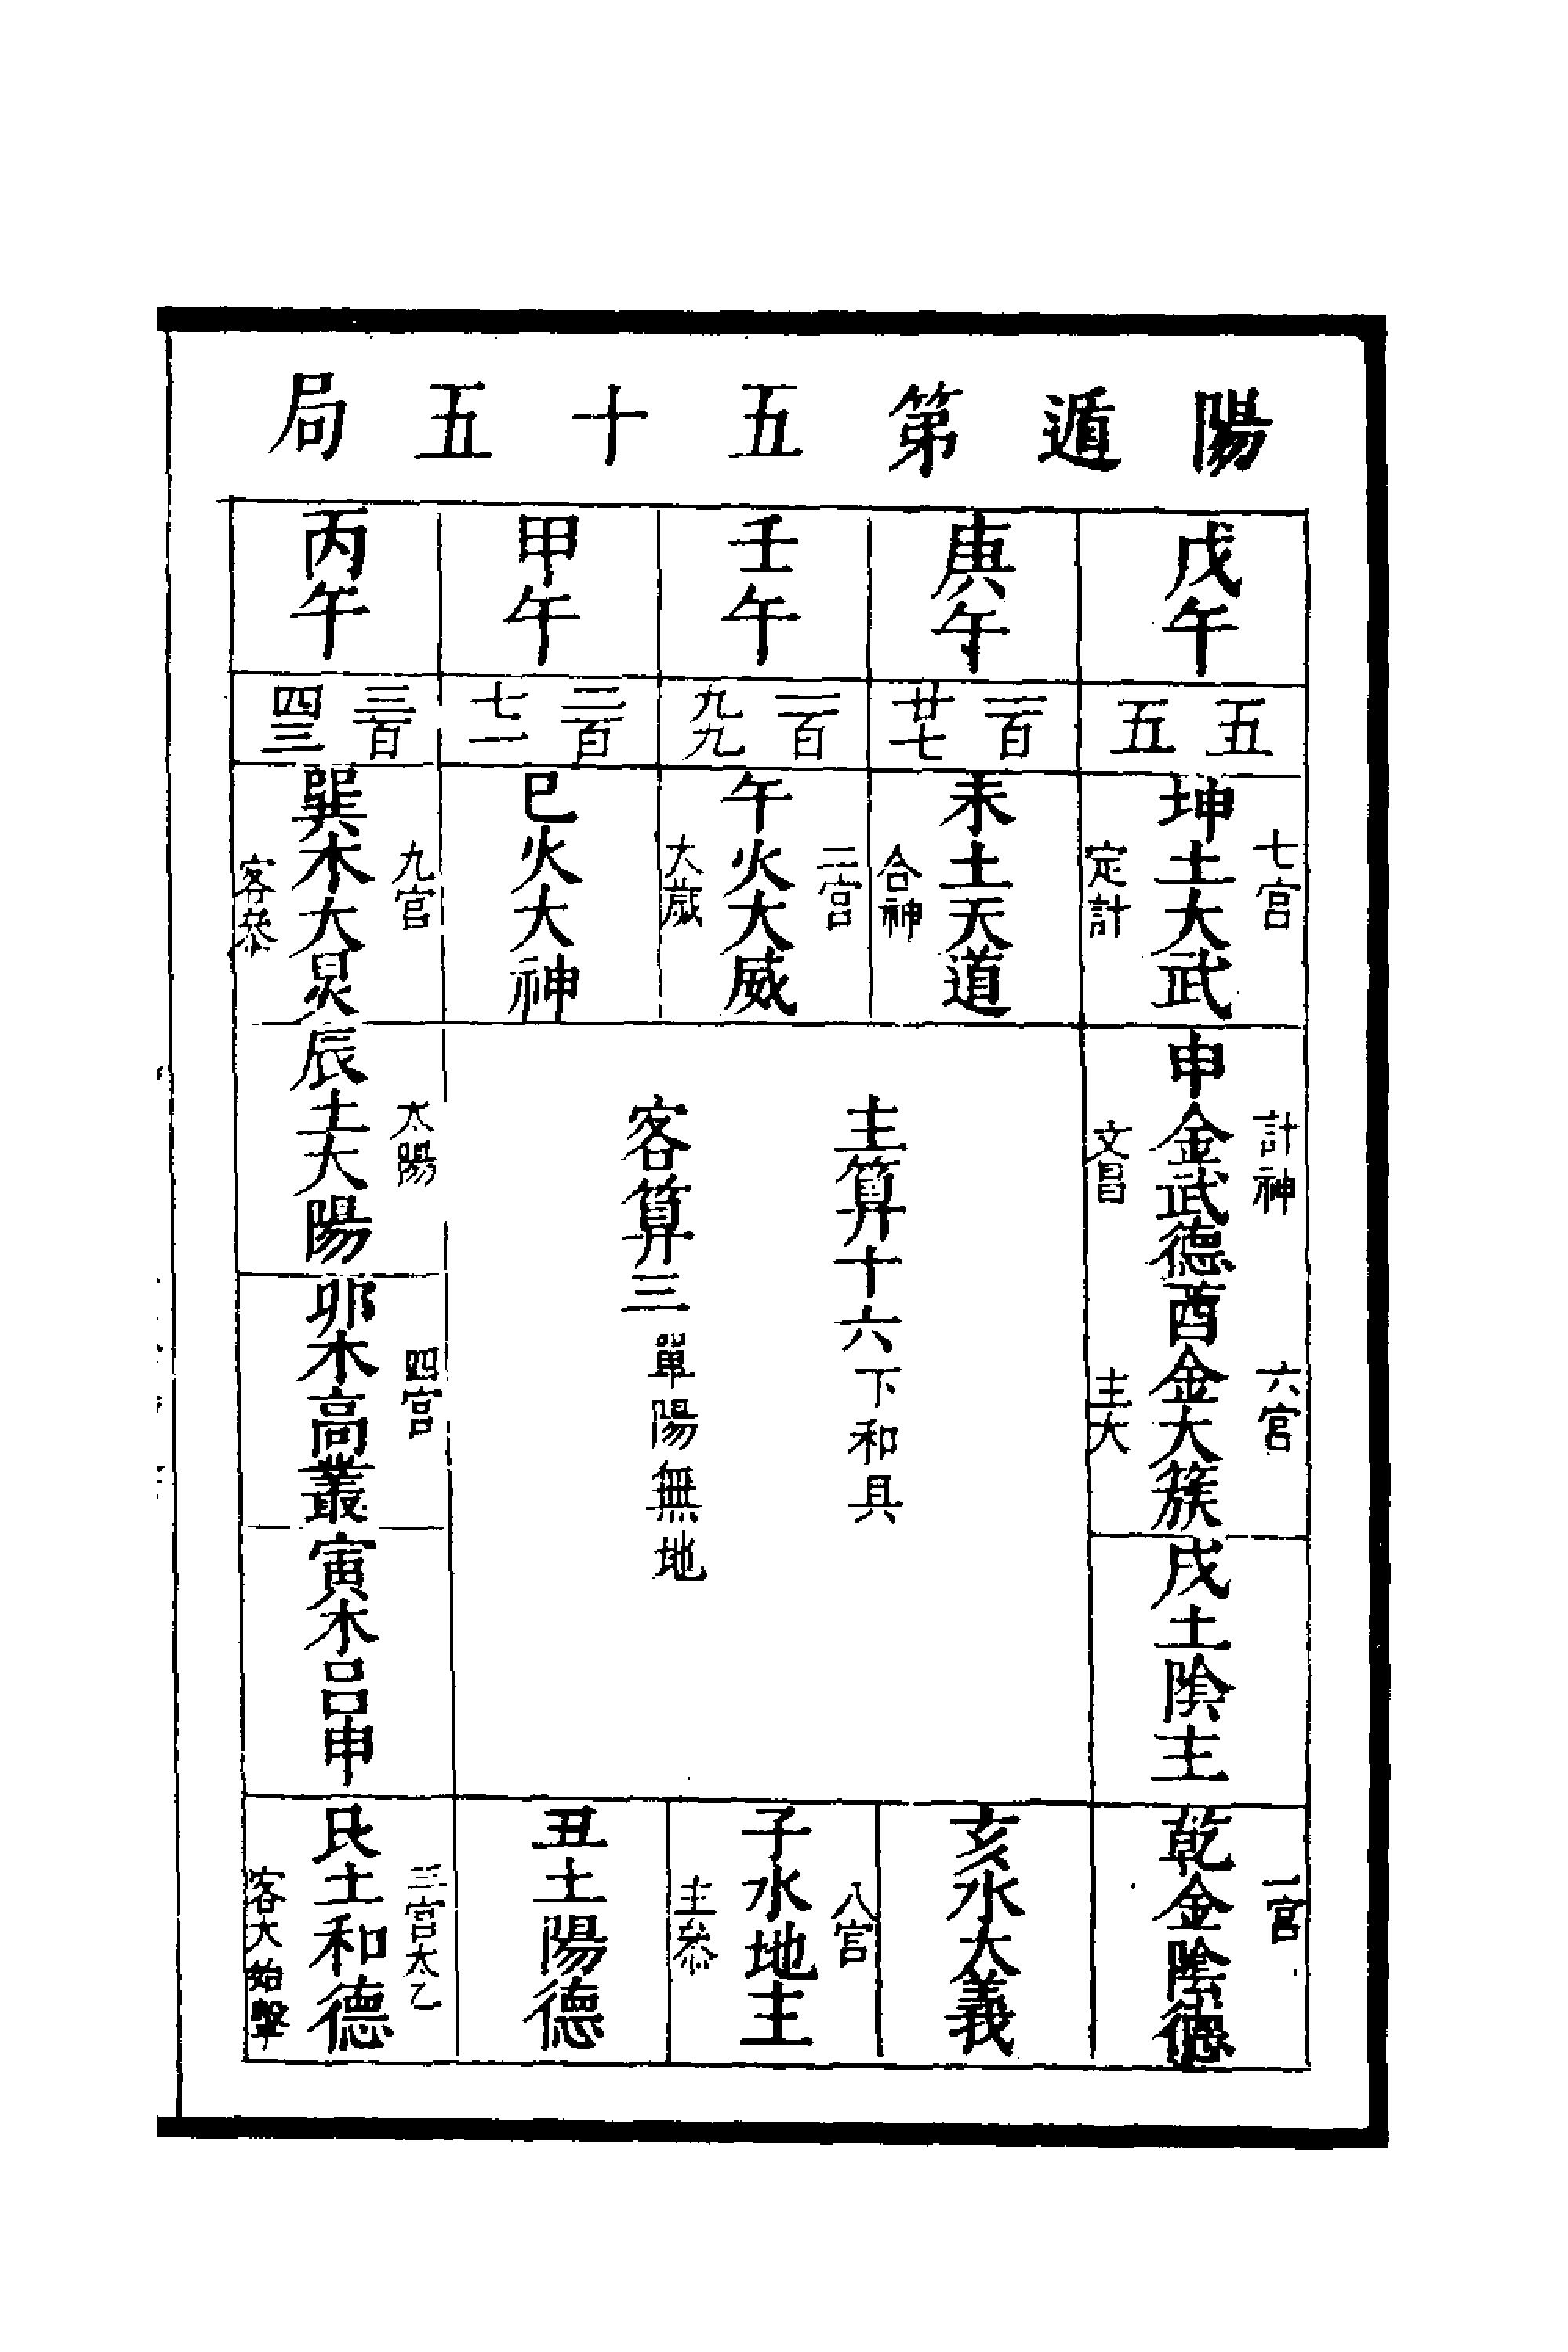 陽遁第五十五局
戊午
庚午
壬午
甲午
丙午
五五
一百廿七
一百九九
二百七一
三百四三
七宮
坤土大武
定計
未土天道
合神
二宮
午火大威
大歲
巳火大神
九宮
巽木大炅
客叅
計神
申金武德
文昌
六宮
酉金大簇
主大
戌土陰主
主算十六下和具
客算三單陽無地
太陽
辰土大陽
四宮
卯木高叢
寅木呂申
一宮
乾金陰德
亥水大義
八宮
子水地主
主叅
丑土陽德
三宮太乙
艮土和德
客大始擊